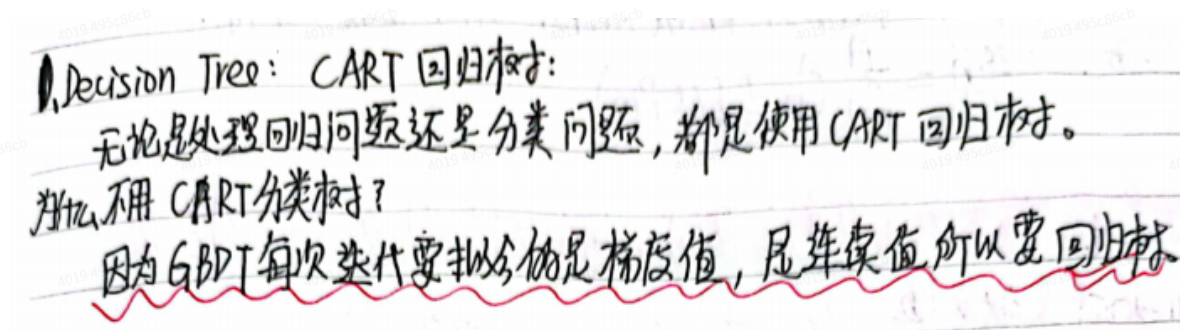 1. Decision Tree: CART 回归树:
无论是处理回归问题还是分类问题,都是使用 CART 回归树。
为什么不用 CART分类树?
因为GBDT每次迭代要拟合的是梯度值,是连续值所以要回归树。